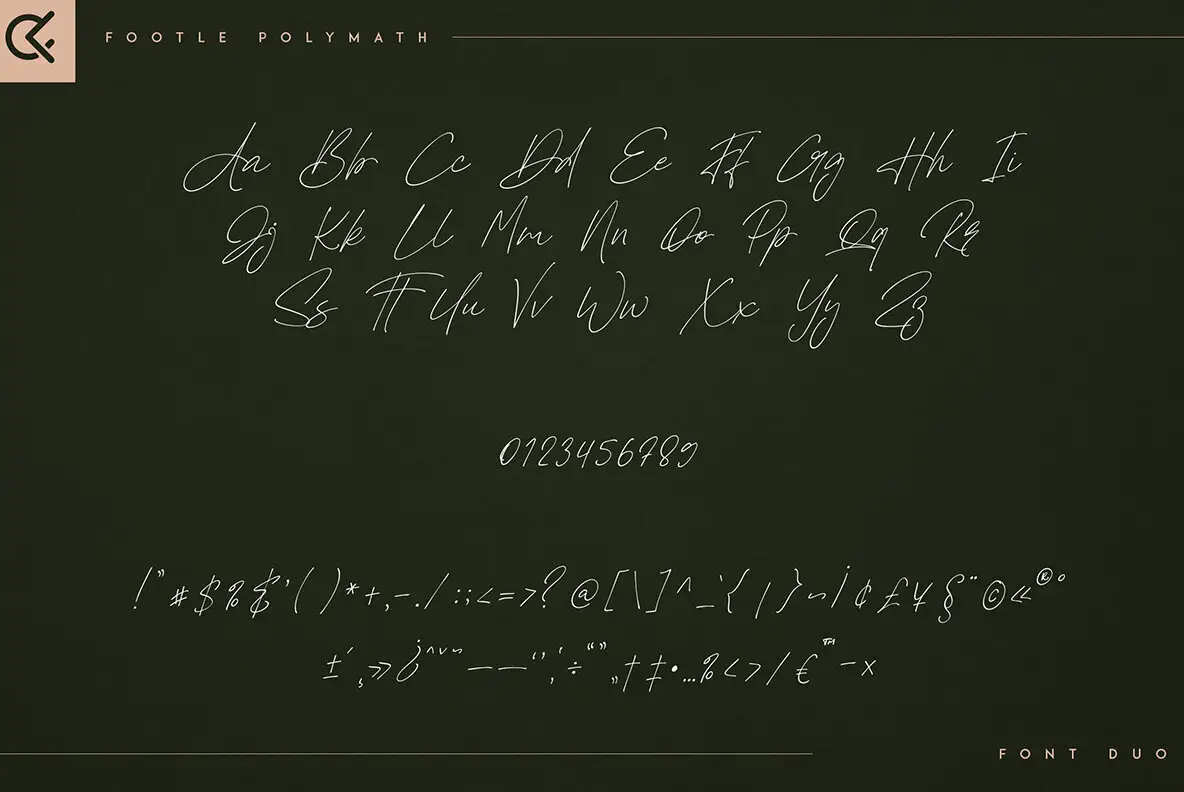 FOOTLE POLYMATH
Aa Bb Cc Dd Ee Ff Gg Hh Ii
Jj Kk Ll Mm Nn Oo Pp Qq Rr
Ss Tt Uu Vv Ww Xx Yy Zz
0123456789
!"#$%&'()*+,-./:;<=>?@[\]^_`{|}~¡¢£¥§¨©«®°
±´¸»¿ˆˇ˜–—‘’‚‛÷“”„†‡•…‰‹›⁄€™−×
FONT DUO